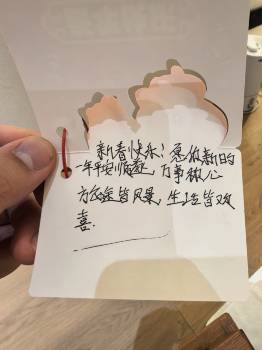 新春快乐！愿你新的
一年平安顺遂，万事称心
方位途皆风景，生活皆欢
喜.